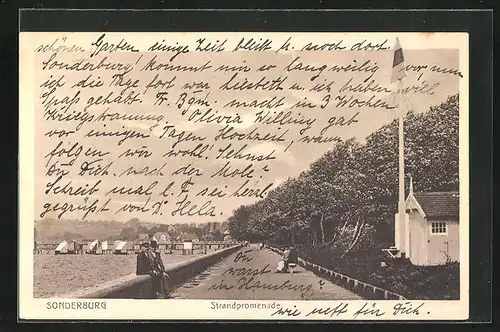 schönen Garten einige Zeit bleibt u. noch dort.
Sonderburg! kommt mir so langweilig vor, nun
ich die Tage fort war Liesbeth u. ich haben viel
Spaß gehabt. Fr. Bgm. macht in 3 Wochen
Kriegstrauung, Olivia Willing gab
vor einigen Tagen Hochzeit, wann
folgen wir wohl. Sehnst
Du Dich nach der Mole?
Schreib mal b. F. sei herzl.
gegrüßt von D. Hela.
Du
warst
in Hamburg?
wie nett für Dich.
SONDERBURG
Strandpromenade